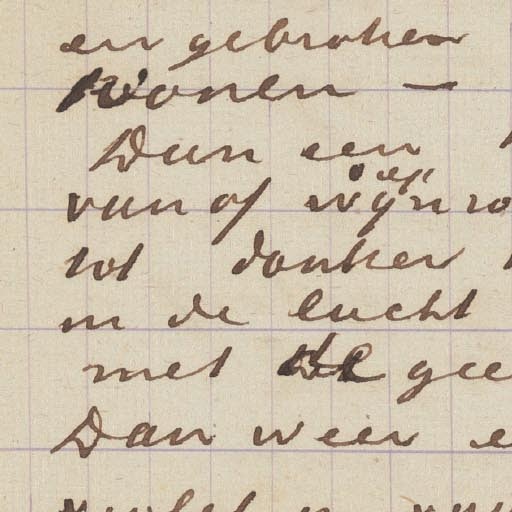 en gebroken
tronen —
Dan een
vanaf wijnro
tot donker
in de lucht
met de gee
Dan weer e